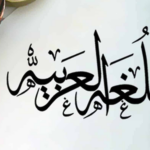 لُغة العربية